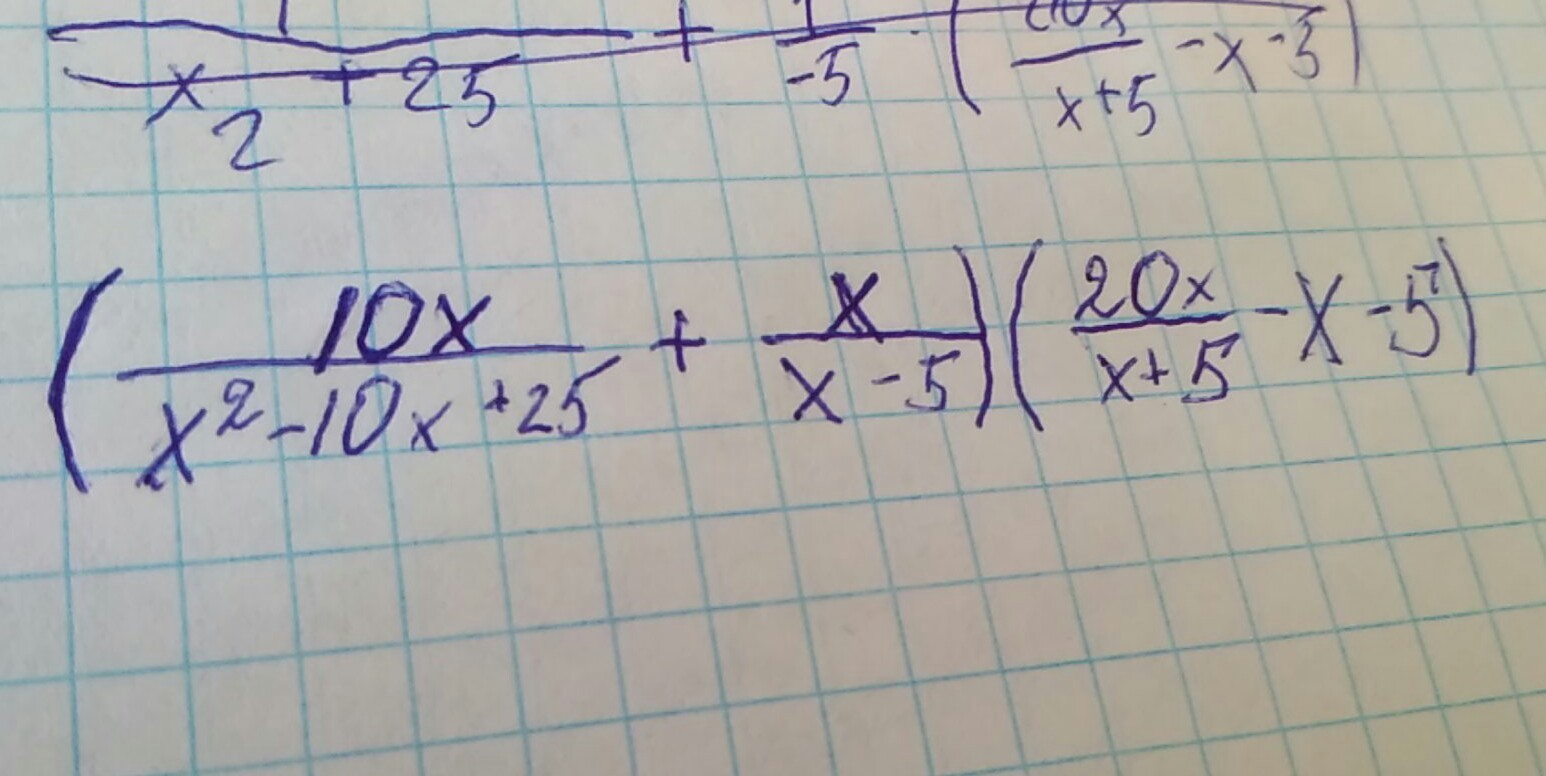 x₂ + 25 + 1/-5 · ( x/x+5 - x - 5)
(10x/x²-10x+25 + x/x-5)(20x/x+5 - x - 5)